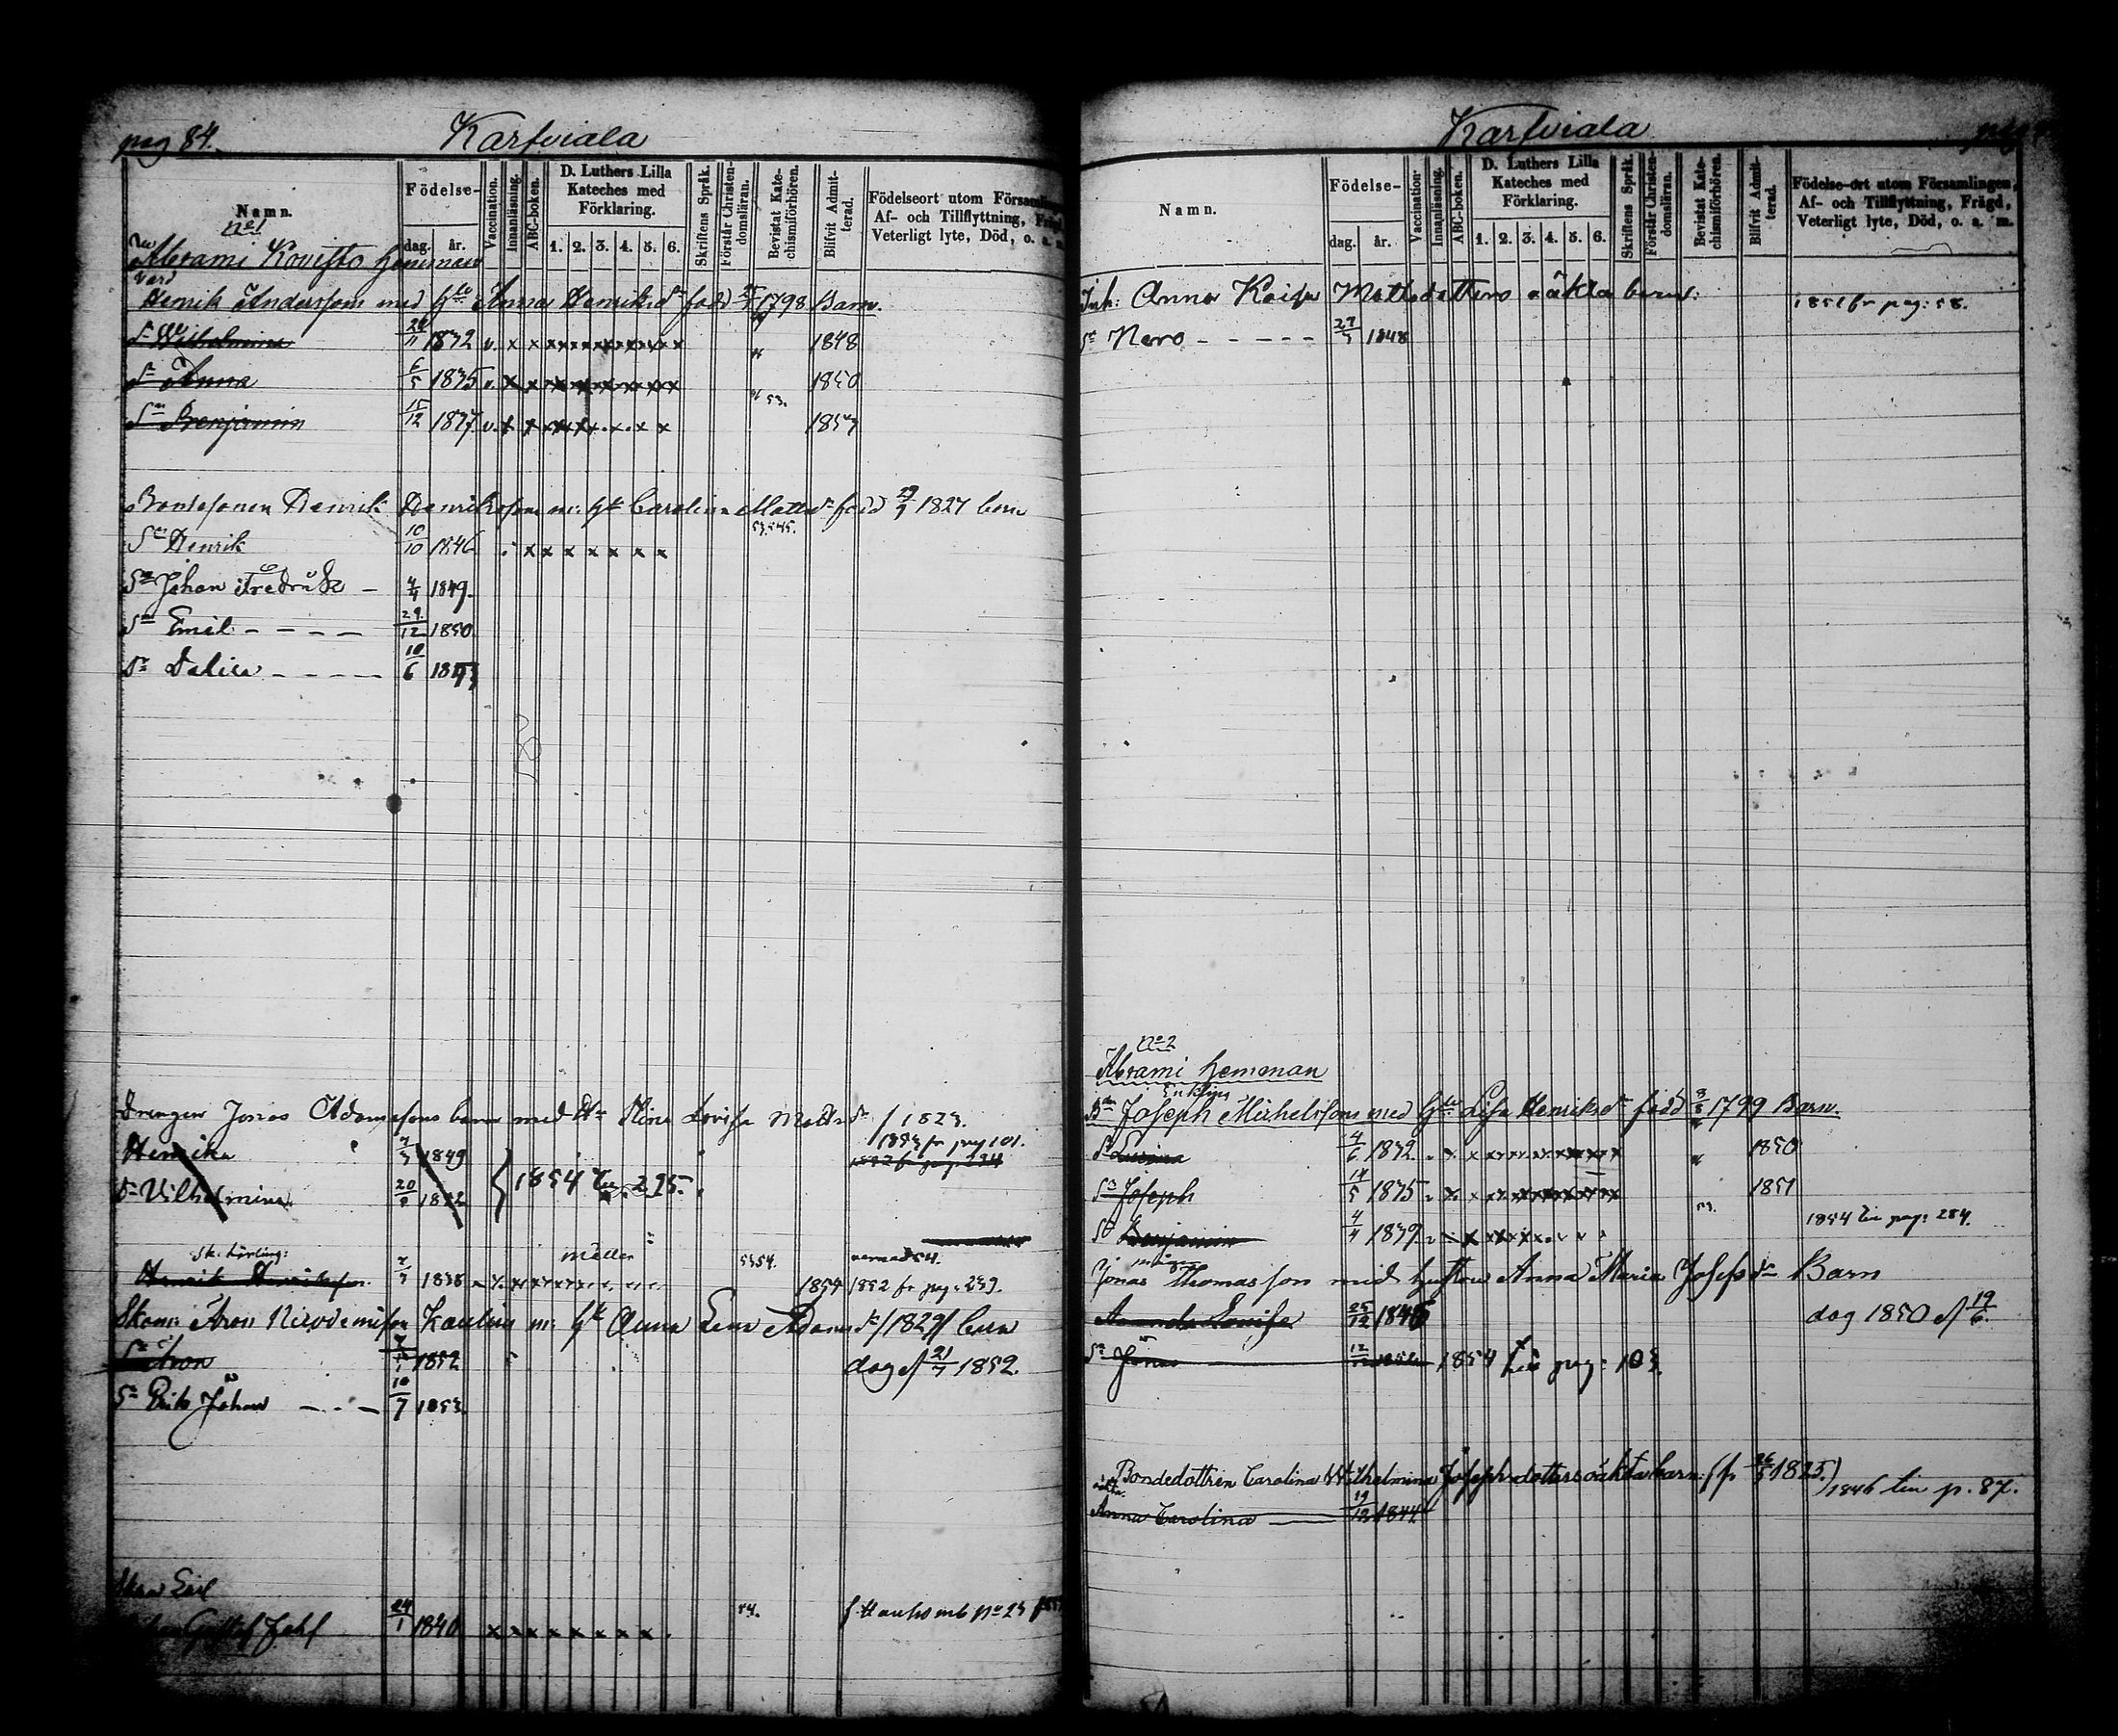 pag 84.
Karfviala
Namn.
Födelse-
dag. år.
Vaccination.
Innanläsning.
ABC-boken.
D. Luthers Lilla
Kateches med
Förklaring.
1. 2. 3. 4. 5. 6.
Skriftens Språk.
Förstår Christen-
domsläran.
Bevistat Kate-
chismiförhören.
Blifvit Admit-
terad.
Födelseort utom Försam
Af- och Tillflyttning, Frägd
Veterligt lyte, Död, o. a. m.
No 1
Abrami Kovisto hemman
Henrik Anderssons med Hu Anna Henriksdr född 1798 Barn.
Dr Wilhelmina 1832 v. x x x x x x x x x x 1848
Dr Anna 6/5 1835 v. x x x x x x x x 1850
Sn Benjamin 15/12 1837 v. x x x x x x x x 53. 1853
Bondesonen Henrik Henriksson m: Hu Carolina Mattsdr född 1827 barn
Sn Henrik 10/10 1846 x x x x x x x
Sn Johan Fredrik — 4/4 1849.
Sn Emil – – – – 29/12 1850
Dr Dalia – – – – 10/6 1853
Drengen Jonas Adamssons barn med Hu Stina Lovisa Mattsdr / 1823.
Henrika 1849 1853 fr pag 101.
Dr Vilhelmina 1852 } 1854 till 295.
Henrik Henriksson 1838 5354. 1854 1852 fr pag: 239.
Skom: Aron Nicodemusson Kaulin m: Hu Anna Lena Adamsdr / 1829/ barn
Sn Aron 1852 dog d 21/7 1852.
Sn Erik Johan — 10/7 1853
Gustaf 24/1 1840 x x x x x x x x 54.
Karfviala
Namn.
Födelse-
dag. år.
Vaccination.
Innanläsning.
ABC-boken.
D. Luthers Lilla
Kateches med
Förklaring.
1. 2. 3. 4. 5. 6.
Skriftens Språk.
Förstår Christen-
domsläran.
Bevistat Kate-
chismiförhören.
Blifvit Admit-
terad.
Födelse-ort utom Församlingen,
Af- och Tillflyttning, Frägd,
Veterligt lyte, Död, o. a. m.
Inh: Anna Kaisa Mattsdotters oäkta barn: 1851 fr pag: 58.
Nero – – – – – 1848
No 2
Abrami hemman
Enkling
Joseph Michelsson med Hu Lisa Henriksdr född 1799 Barn.
Dr Lovisa 4/6 1832 1850
Sn Joseph 14/5 1835 1851
Sn Benjamin 4/4 1839 1854 till pag: 284.
Jonas Thomasson med hustru Anna Maria Josefsdr Barn
Amanda Lovisa 25/12 1846 dog 1850 d 19/6.
Sn Jonas 1854 till pag: 103.
Bondedottren Carolina Wilhelmina Josephsdotters oäkta barn: (f. 26/5 1825.)
1846 till p. 87.
Anna Carolina — 19/12 1844